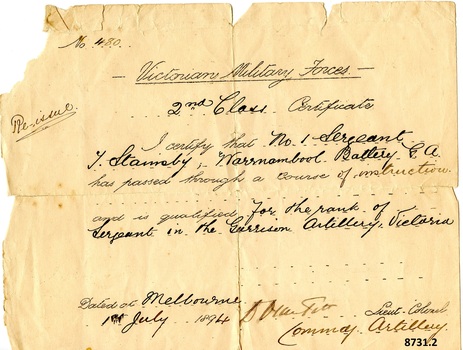 No. 480.
Victorian Military Forces
2nd Class Certificate
Re-issue
I certify that No. 1 Sergeant
T. Stamsby, Warrnambool Battery G. A.
has passed through a course of instruction
and is qualified for the rank of
Sergeant in the Garrison Artillery, Victoria
Dated at Melbourne
1st July 1894
Lieut-Colonel
Commdg Artillery.
8731.2